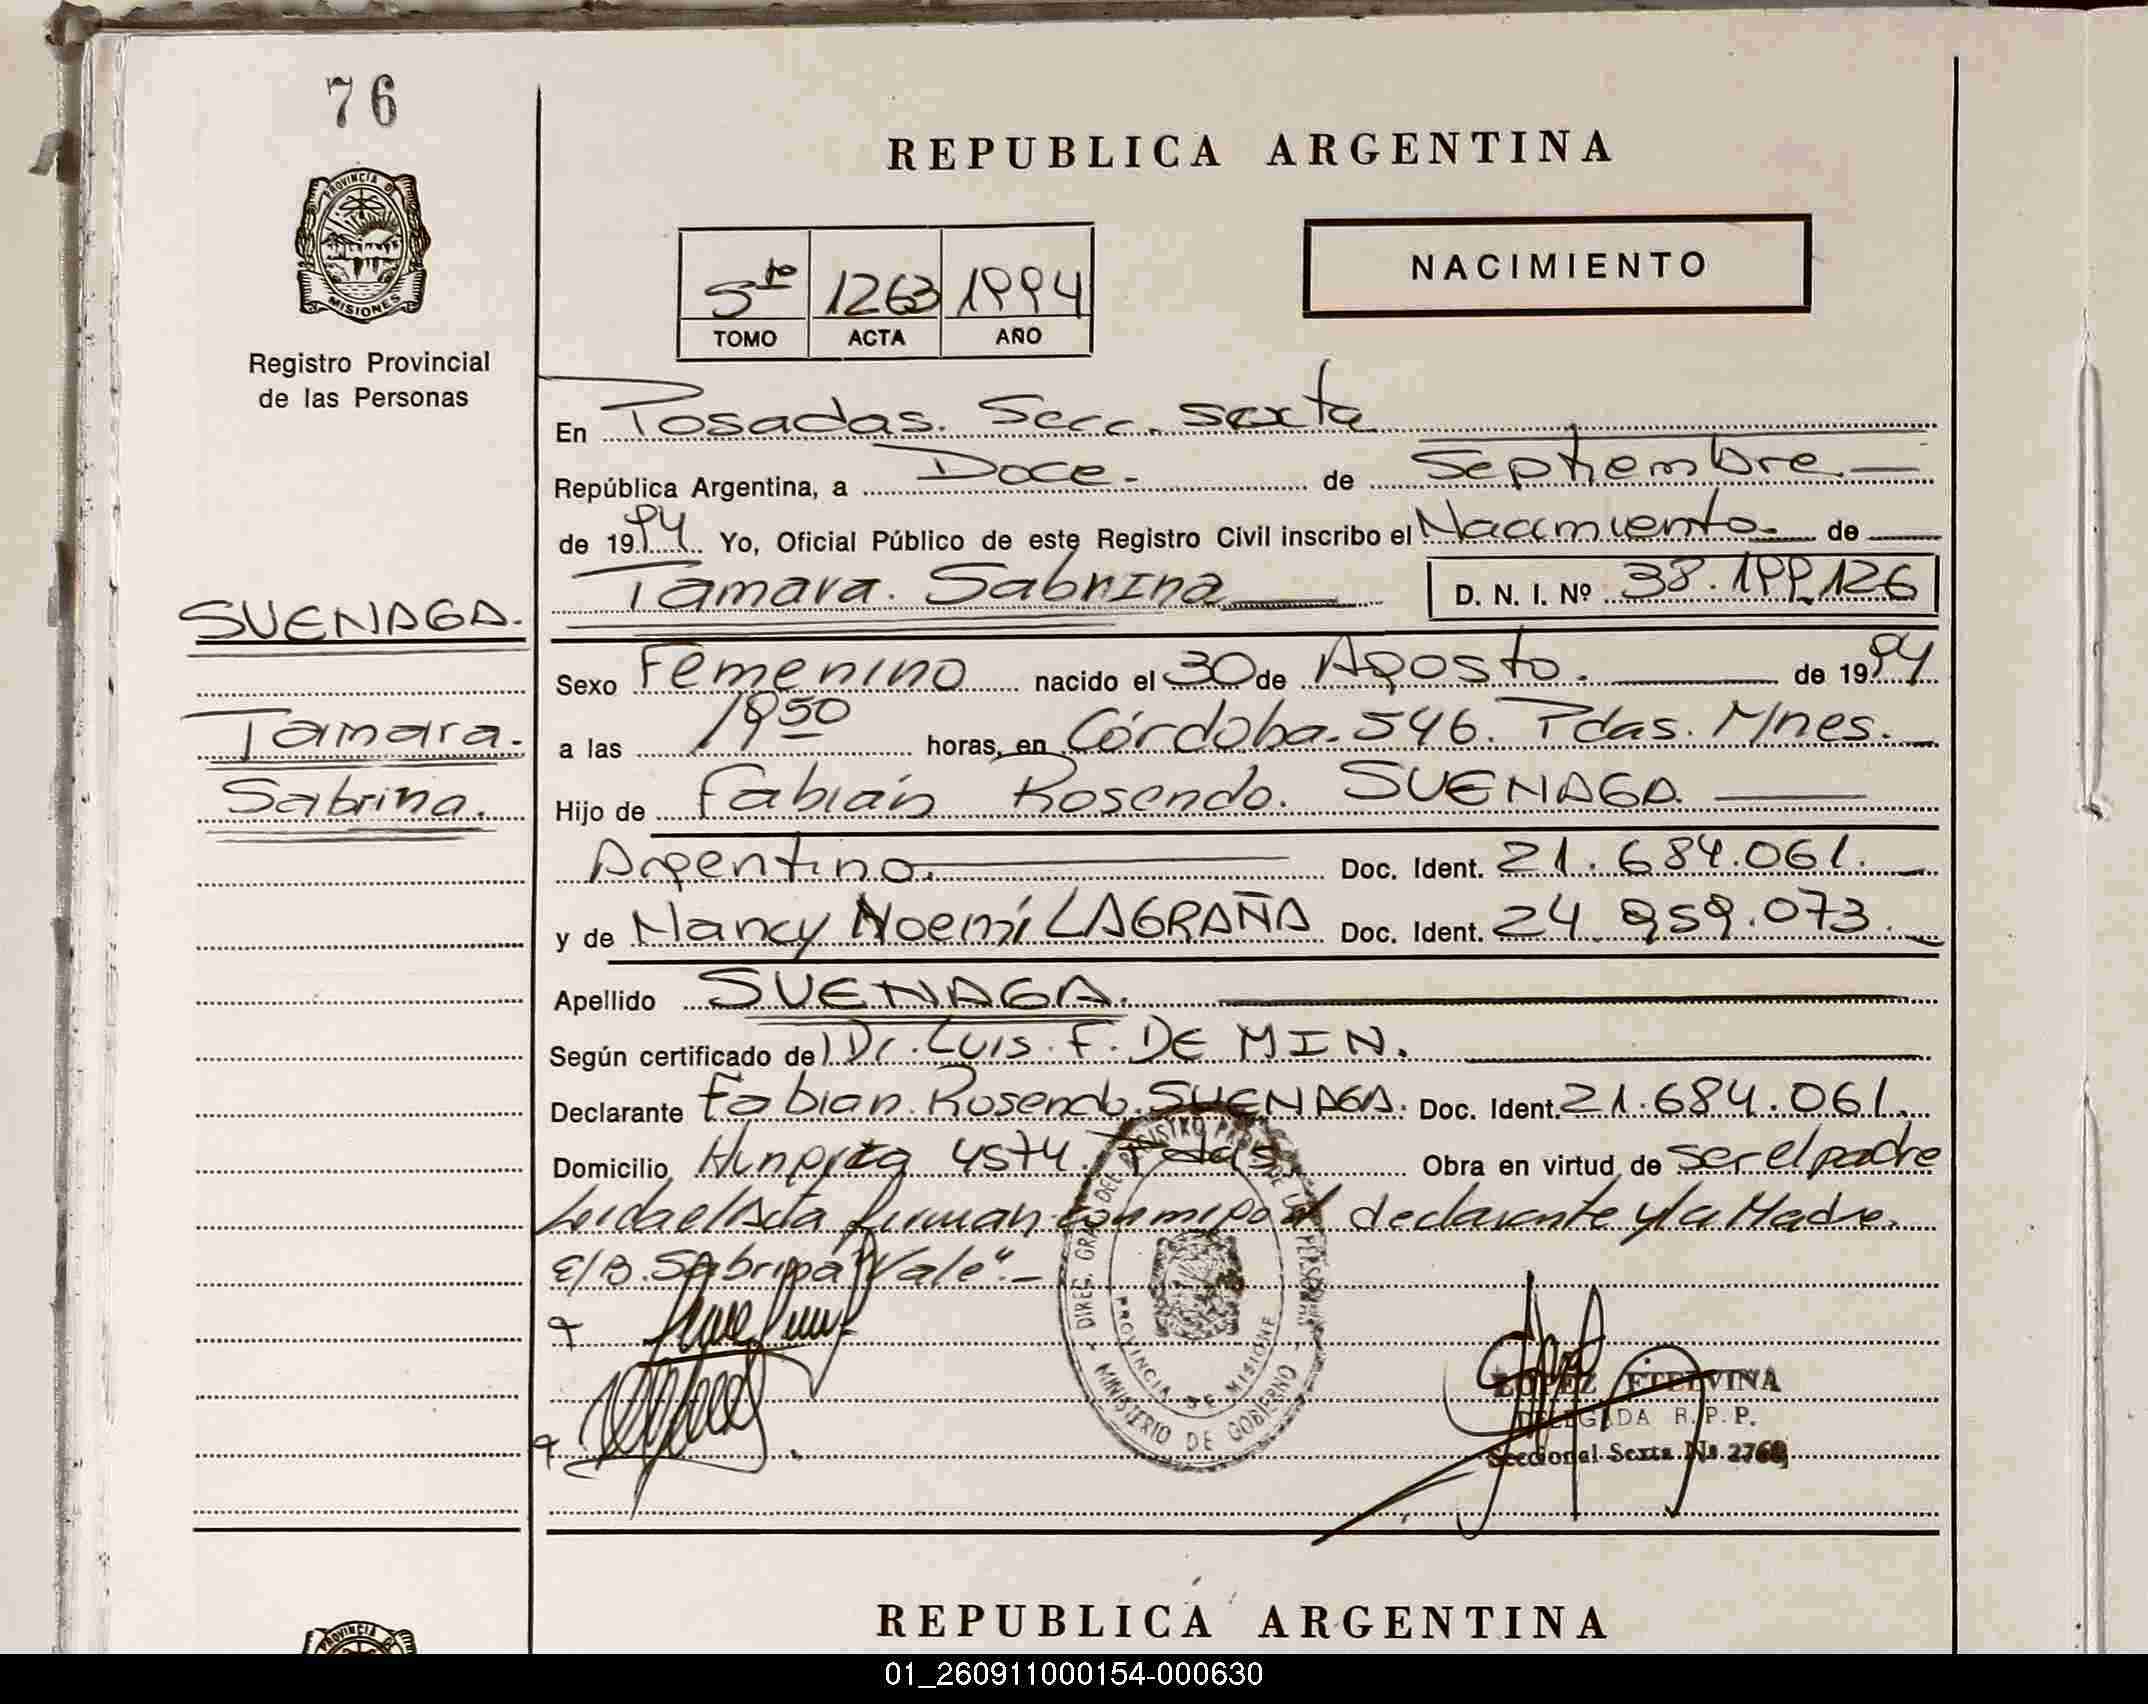 76
REPUBLICA ARGENTINA
PROVINCIA DE
MISIONES
Registro Provincial
de las Personas
5to 1263 1994
TOMO ACTA AÑO
NACIMIENTO
En Posadas. Secc. sexta
República Argentina, a Doce.- de Septiembre.-
de 1994 Yo, Oficial Público de este Registro Civil inscribo el Nacimiento. de
Tamara. Sabrina D. N. I. Nº 38.199.126
SUENAGA.
Tamara.
Sabrina.
Sexo Femenino nacido el 30 de Agosto. de 1994
a las 1950 horas, en Córdoba. 546. Pdas. Mnes.
Hijo de Fabián Rosendo. SUENAGA.
Argentino. Doc. Ident. 21.684.061.
y de Nancy Noemí LAGRAÑA Doc. Ident. 24.959.073.
Apellido SUENAGA.
Según certificado del Dr. Luis. F. DE MIN.
Declarante Fabian. Rosendo. SUENAGA. Doc. Ident. 21.684.061.
Domicilio 4574. Pdas Obra en virtud de ser el padre
Leida el Acta firman declarante y la Madre.
E/B. Sabrina "Vale".-
DIREC. GRAL DEL REGISTRO PROV. DE LAS PERSONAS
PROVINCIA DE MISIONES
MINISTERIO DE GOBIERNO
LOPEZ ETELVINA
DELEGADA R. P. P.
Seccional Sexta Nº
REPUBLICA ARGENTINA
PROVINCIA DE
01_260911000154-000630